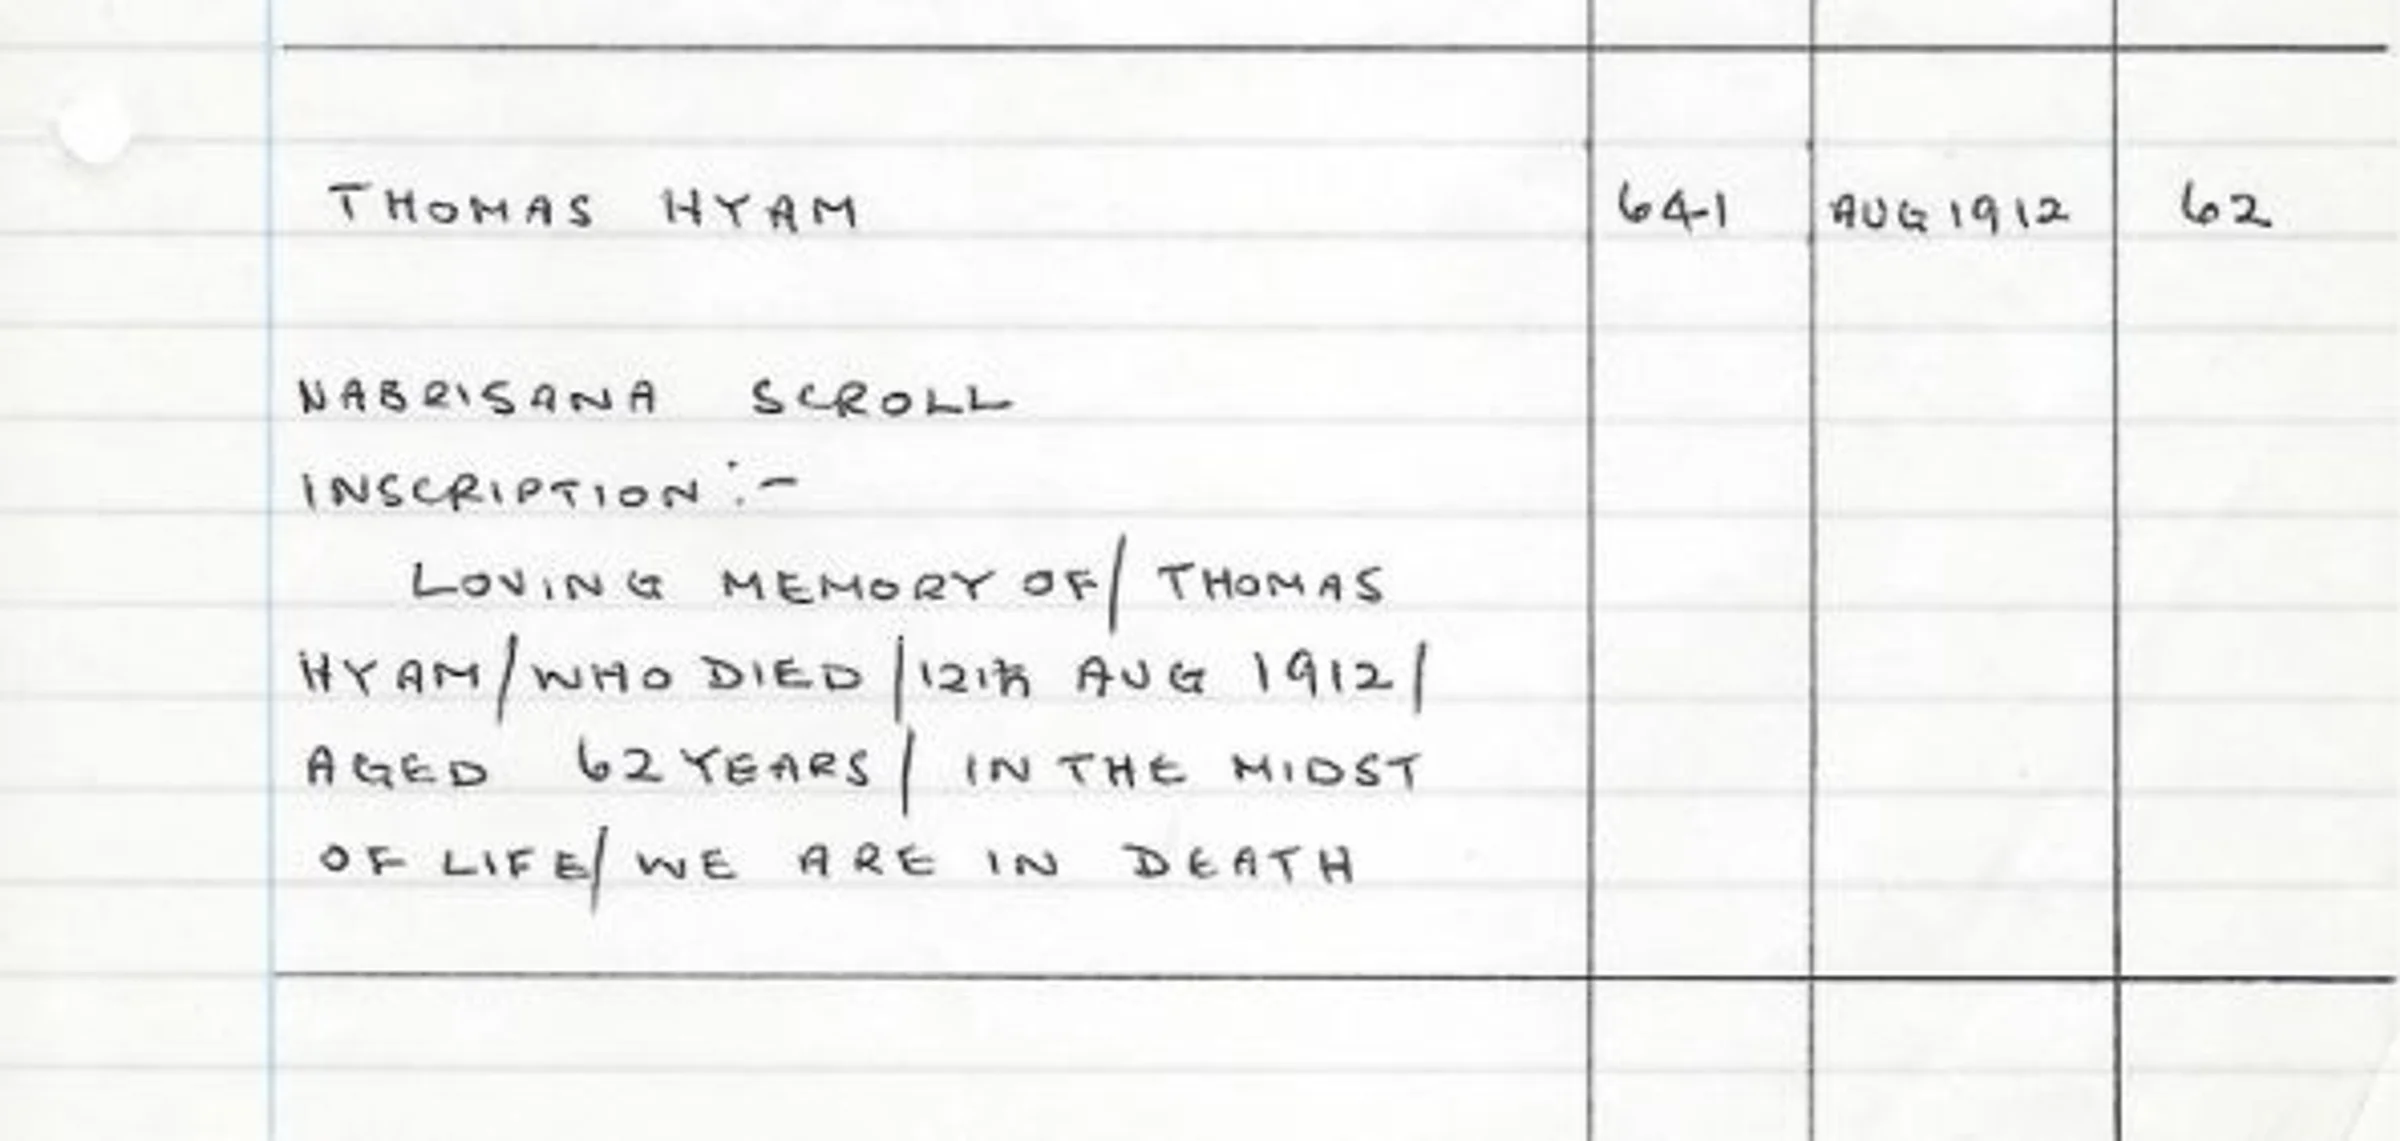 THOMAS HYAM 64-1 AUG 1912 62
NABRISANA SCROLL
INSCRIPTION :-
LOVING MEMORY OF/ THOMAS
HYAM/WHO DIED/12th AUG 1912/
AGED 62 YEARS/ IN THE MIDST
OF LIFE/ WE ARE IN DEATH